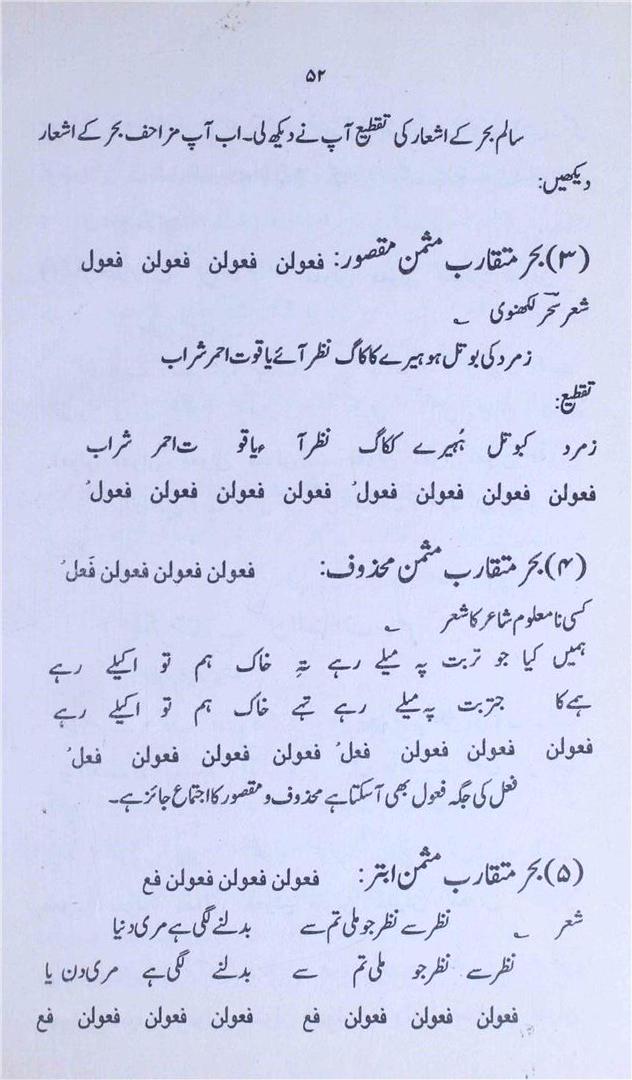 ۵۲
سالم بحر کے اشعار کی تقطیع آپ نے دیکھ لی۔ اب آپ مزاحف بحر کے اشعار
دیکھیں:
(۳) بحر متقارب مثمن مقصور: فعولن فعولن فعولن فعول
شعر سحرؔ لکھنوی
زمرد کی بوتل ہو ہیرے کا کاگ نظر آئے یاقوت احمر شراب
تقطیع:
زمرد کبوتل ہُہیرے ککاگ نظر آ ءیاقو ت احمر شراب
فعولن فعولن فعولن فعولُ فعولن فعولن فعولن فعولُ
(۴) بحر متقارب مثمن محذوف: فعولن فعولن فعولن فَعلُ
کسی نامعلوم شاعر کا شعر
ہمیں کیا جو تربت پہ میلے رہے تہِ خاک ہم تو اکیلے رہے
ہمے کا جتربت پہ میلے رہے تہے خاک ہم تو اکیلے رہے
فعولن فعولن فعولن فعلُ فعولن فعولن فعولن فعلُ
فعل کی جگہ فعول بھی آسکتا ہے محذوف و مقصور کا اجتماع جائز ہے۔
(۵) بحر متقارب مثمن ابتر: فعولن فعولن فعولن فع
شعر نظر سے نظر جو ملی تم سے بدلنے لگی ہے مری دنیا
نظر سے نظر جو ملی تم سے بدلنے لگی ہے مری دن یا
فعولن فعولن فعولن فع فعولن فعولن فعولن فع